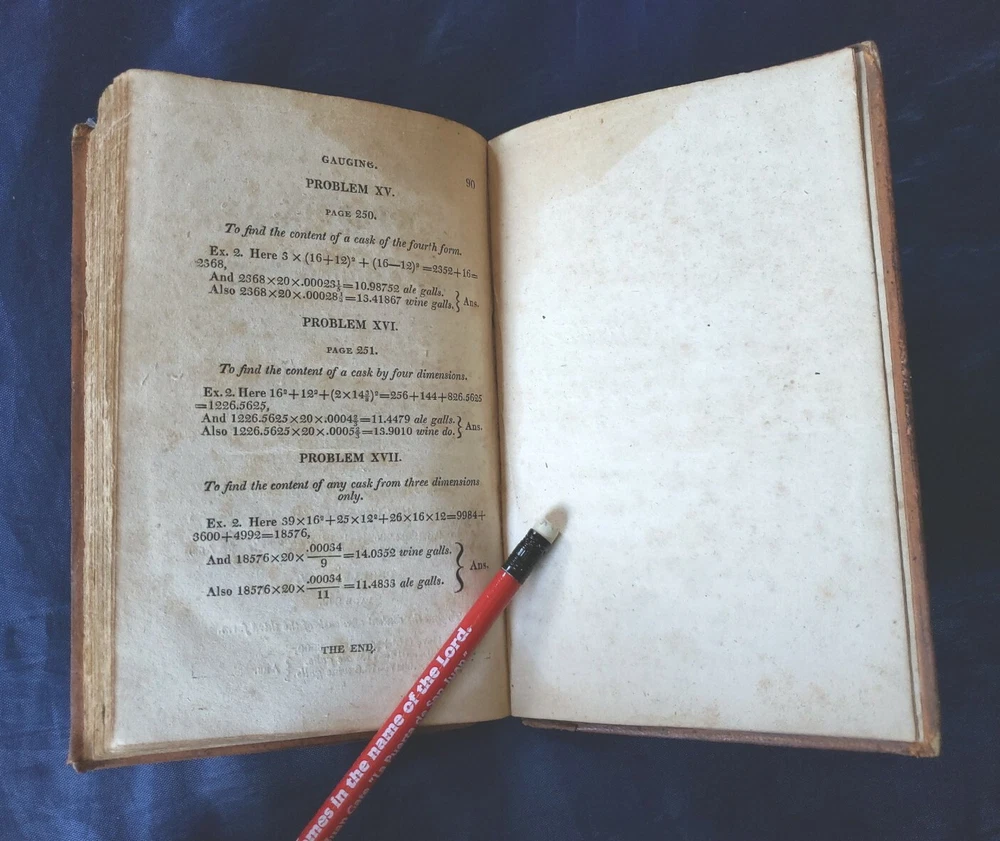 GAUGING.
90
PROBLEM XV.
PAGE 250.
To find the content of a cask of the fourth form.
Ex. 2. Here 3 × (16+12)² + (16—12)² =2352+16=
2368,
And 2368×20×.00023⅕=10.98752 ale galls. } Ans.
Also 2368×20×.00028⅓=13.41867 wine galls.
PROBLEM XVI.
PAGE 251.
To find the content of a cask by four dimensions.
Ex. 2. Here 16²+12²+(2×14⅜)²=256+144+826.5625
=1226.5625,
And 1226.5625×20×.0004⅔=11.4479 ale galls. } Ans.
Also 1226.5625×20×.0005⅔=13.9010 wine do.
PROBLEM XVII.
To find the content of any cask from three dimensions
only.
Ex. 2. Here 39×16²+25×12²+26×16×12=9984+
3600+4992=18576,
And 18576×20× .00034/9 =14.0352 wine galls. } Ans.
Also 18576×20× .00034/11 =11.4833 ale galls.
THE END.
mes in the name of the Lord.
"La Puerta de San Juan"